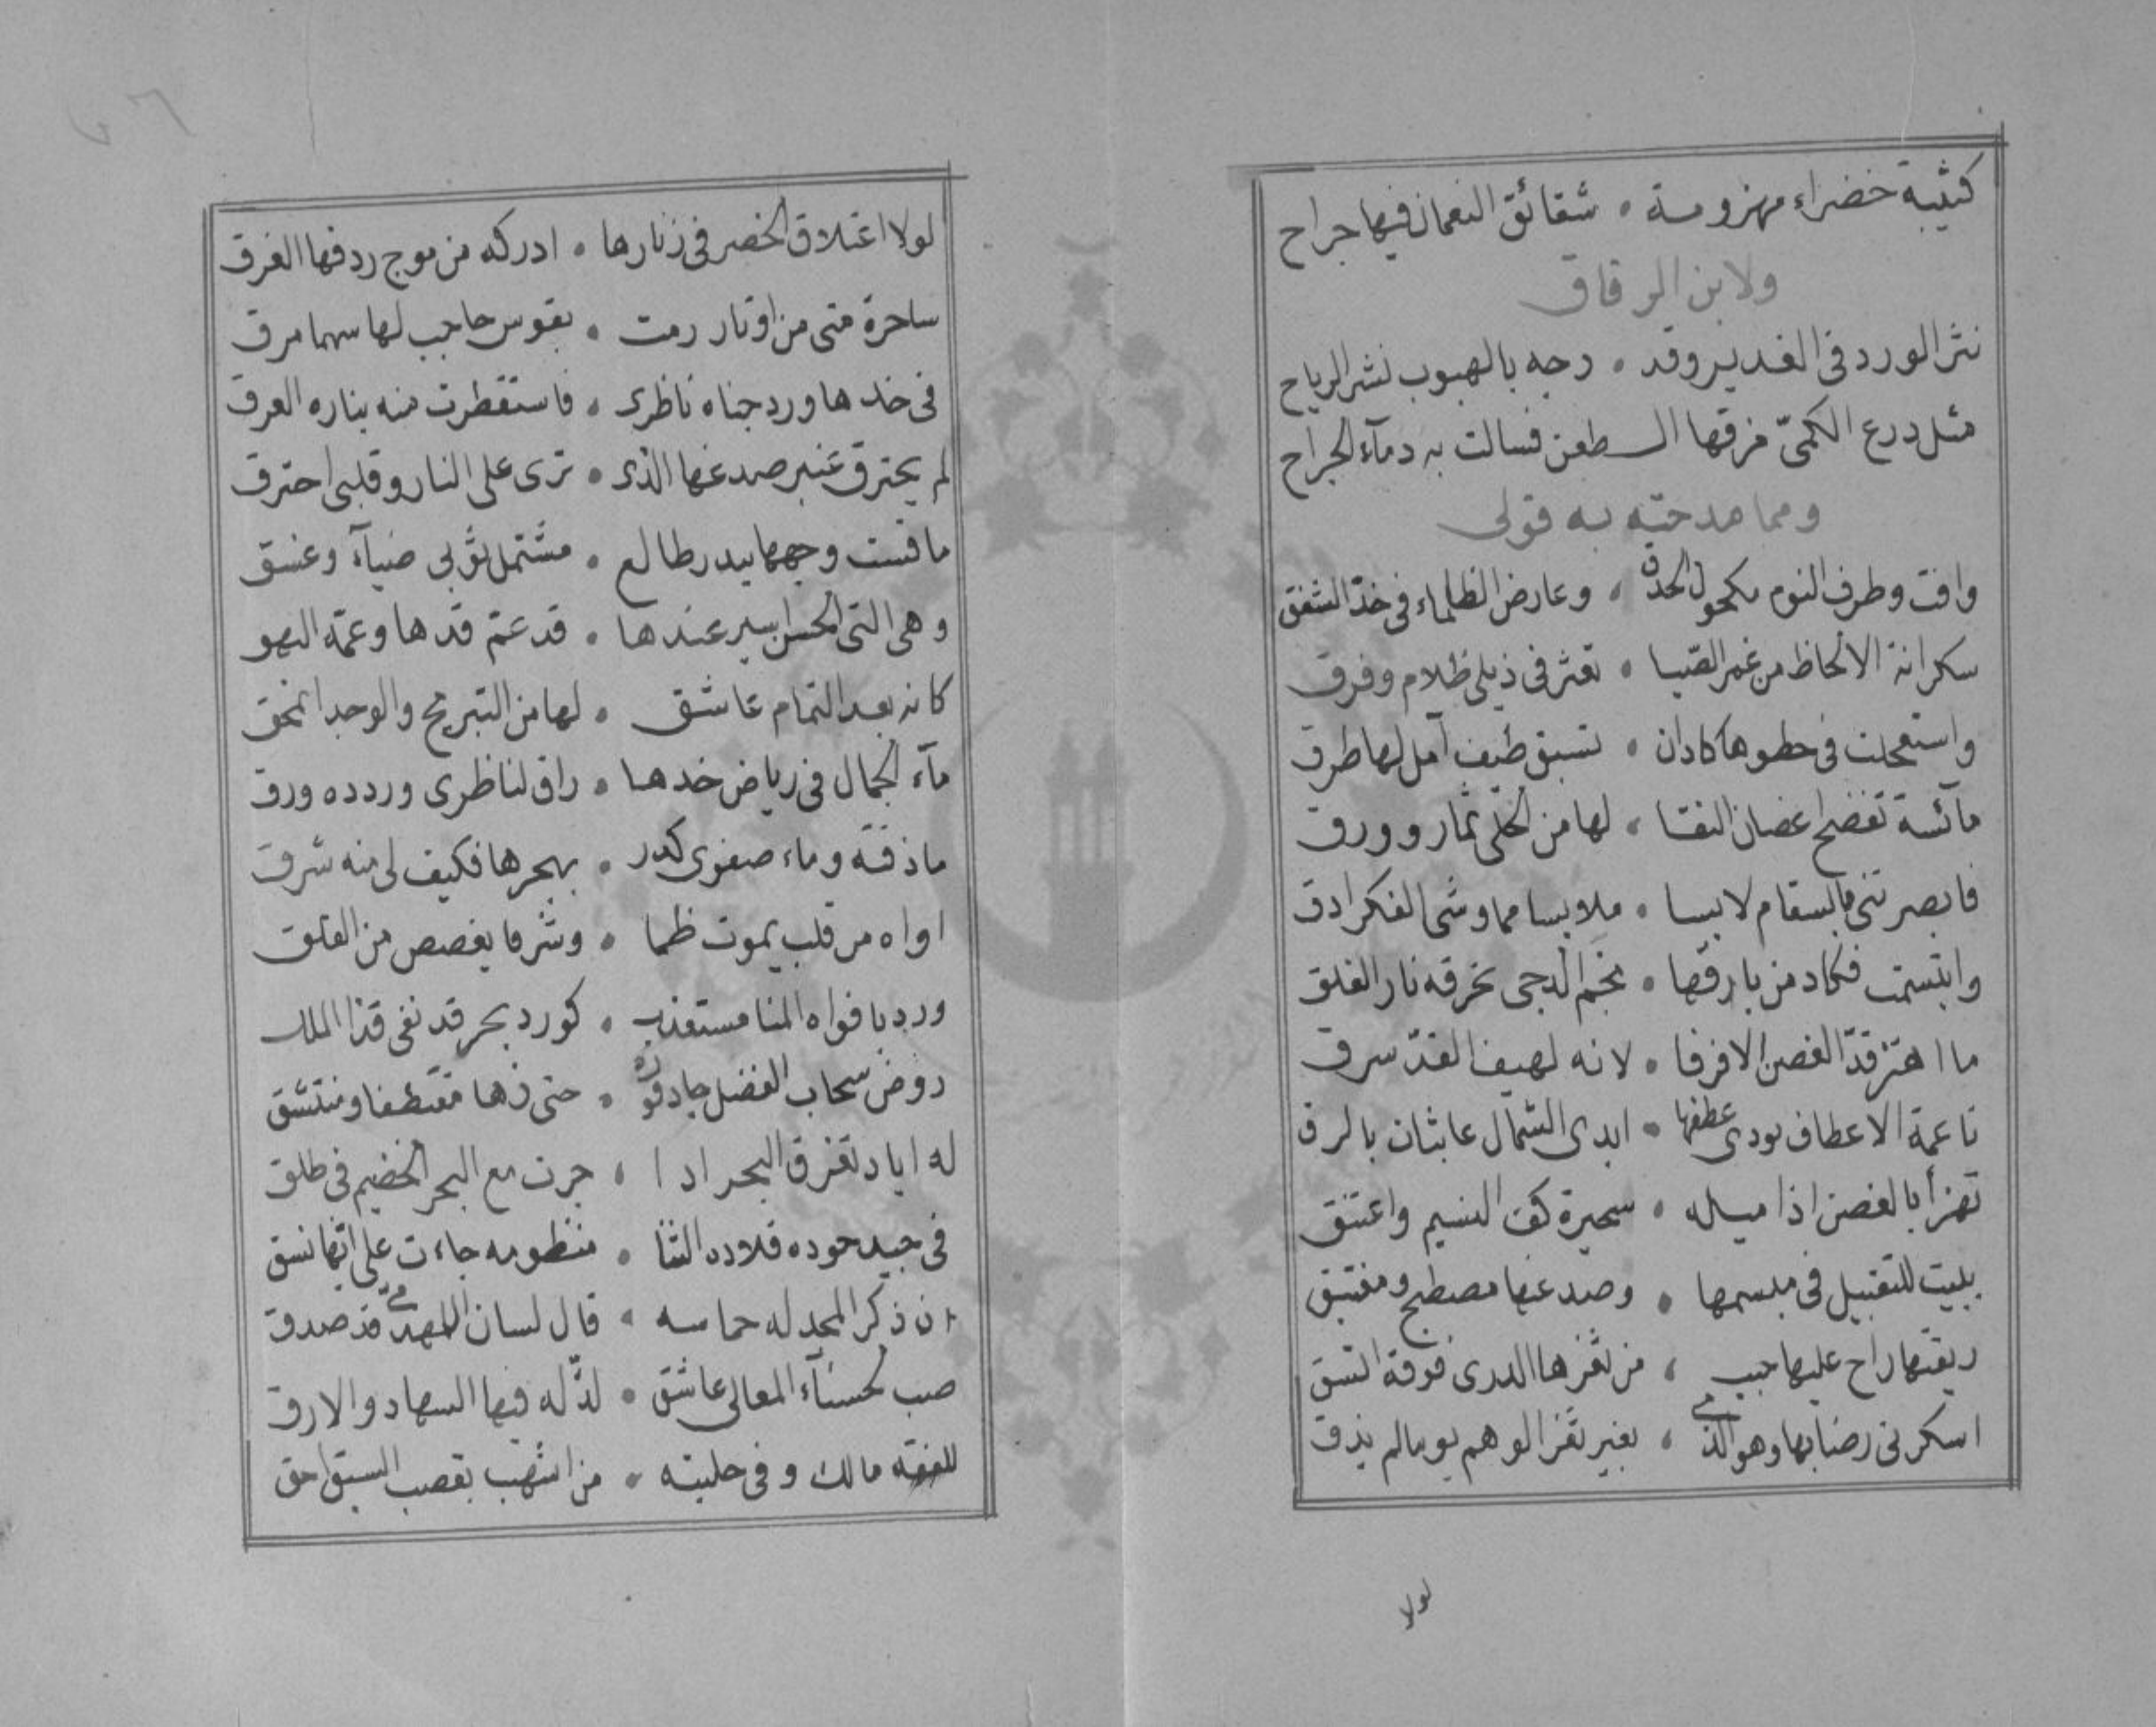 كتيبة خضراء مهزومة . شقائق النعمان فيها جراح
ولابن الرقاق
نثر الورد فى الغدير وقد . رجه بالهبوب نشر الرياح
مثل درع الكمىّ مزقها الـ ـطعن فسالت به دمآء الجراح
ومما مدحته به قولى
وافت وطرف النوم مكحول الحدق . وعارض الظلماء فى خدّ الشفق
سكرانة الالحاظ من خمر الصبا . تعثر فى ذيلى ظلام وفرق
واستعجلت فى خطوها كادان . تسبق طيف آمل لها طرق
مآئسة تفضح اغصان النقا . لها من الحلى ثمار وورق
فابصرتنى بالسقام لابسا . ملابسا مما وشى الفكر ادق
وابتسمت فكاد من بارقها . نجم الدجى تحرقه نار الفلق
ما اهتز قدّ الغصن الا فرقا . لانه لهيف القدّ سرق
ناعمة الاعطاف يودى عطفها . ايدى الشمال عابثان بالرق
تهزأ بالغصن اذا ميله . سحيرة كف النسيم واعتنق
يبيت للتقبيل فى مبسمها . وصدغها مصطبح ومغتبق
ريقتها راح عليها حبب . من ثغرها الدرى فوقه اتسق
اسكرنى رضابها وهو الذى . بغير ثغر الوهم يوما لم يذق
لولا
لولا اعتلاق الخصر فى زنارها . ادركه من موج ردفها الغرق
ساحرة متى من اوتار رمت . بقوس حاجب لها سهما مرق
فى خدها ورد جناه ناظرى . فاستقطرت منه بناره العرق
لم يحترق عنبر صدغها الذى . ترى على النار وقلبى احترق
ما قست وجهها ببدر طالع . مشتمل ثوبى ضيآء وغسق
وهى التى الحسن اسير عندها . قد عمّ قدها وعمّه البهو
كانه بعد التمام عاشق . لها من التبريح والوجد انمحق
مآء الجمال فى رياض خدها . راق لناظرى وردده ورق
ما ذقته وماء صفوى كدر . بهجرها فكيف لى منه شرق
اواه من قلب يموت ظما . وشرفا يغصص من القلق
ورد بافواه المنا مستعذب . كورد بحر قد نفى قذا الملق
روض سحاب الفضل جاد فوقه . حتى زها مقتطفا ومنتشق
له اياد تغرق البحر اذا . جرت مع البحر الخضيم فى طلق
فى جيد جوده قلاده الثنا . منظومه جاءت على اتها نسق
ان ذكر المجد له حماسه . قال لسان المهدى قد صدق
صب لحسنآء المعالى عاشق . لذّ له فيها السهاد والارق
للفقه مالك وفى حلبته . من اشهب بقصب السبق احق